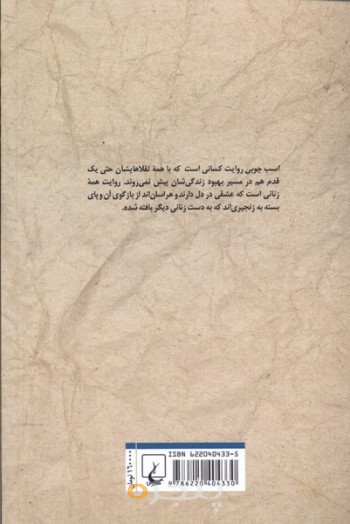 اسب چوبی روایت کسانی است که با همهٔ تقلاهایشان حتی یک
قدم هم در مسیر بهبود زندگی‌شان پیش نمی‌روند. روایت همهٔ
زنانی است که عشقی در دل دارند و هراسان‌اند از بازگوی آن و پای
بسته به زنجیری‌اند که به دست زنانی دیگر بافته شده.
ISBN 622040433-5
9 786220 404330
۱۶۰۰۰۰ تومان